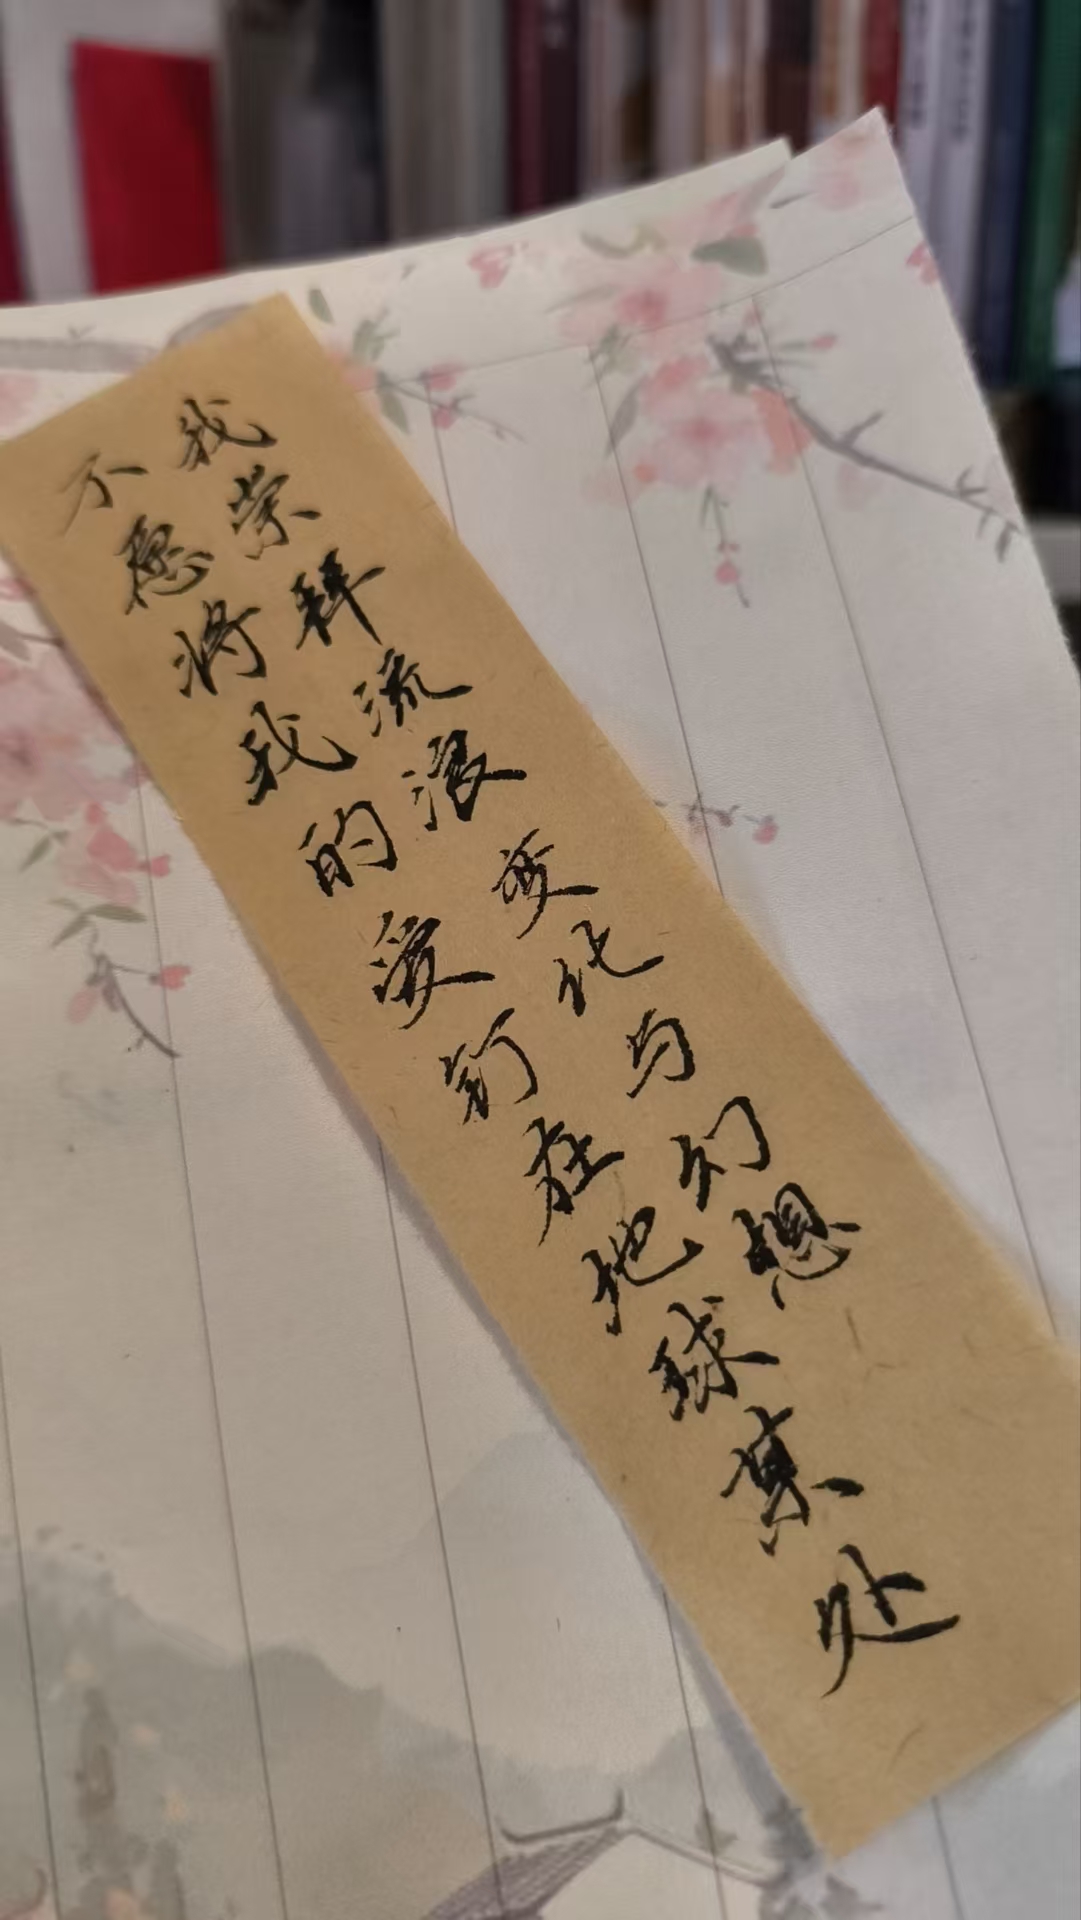 我崇拜流浪 变化与幻想
不愿将我的爱钉在地球某处